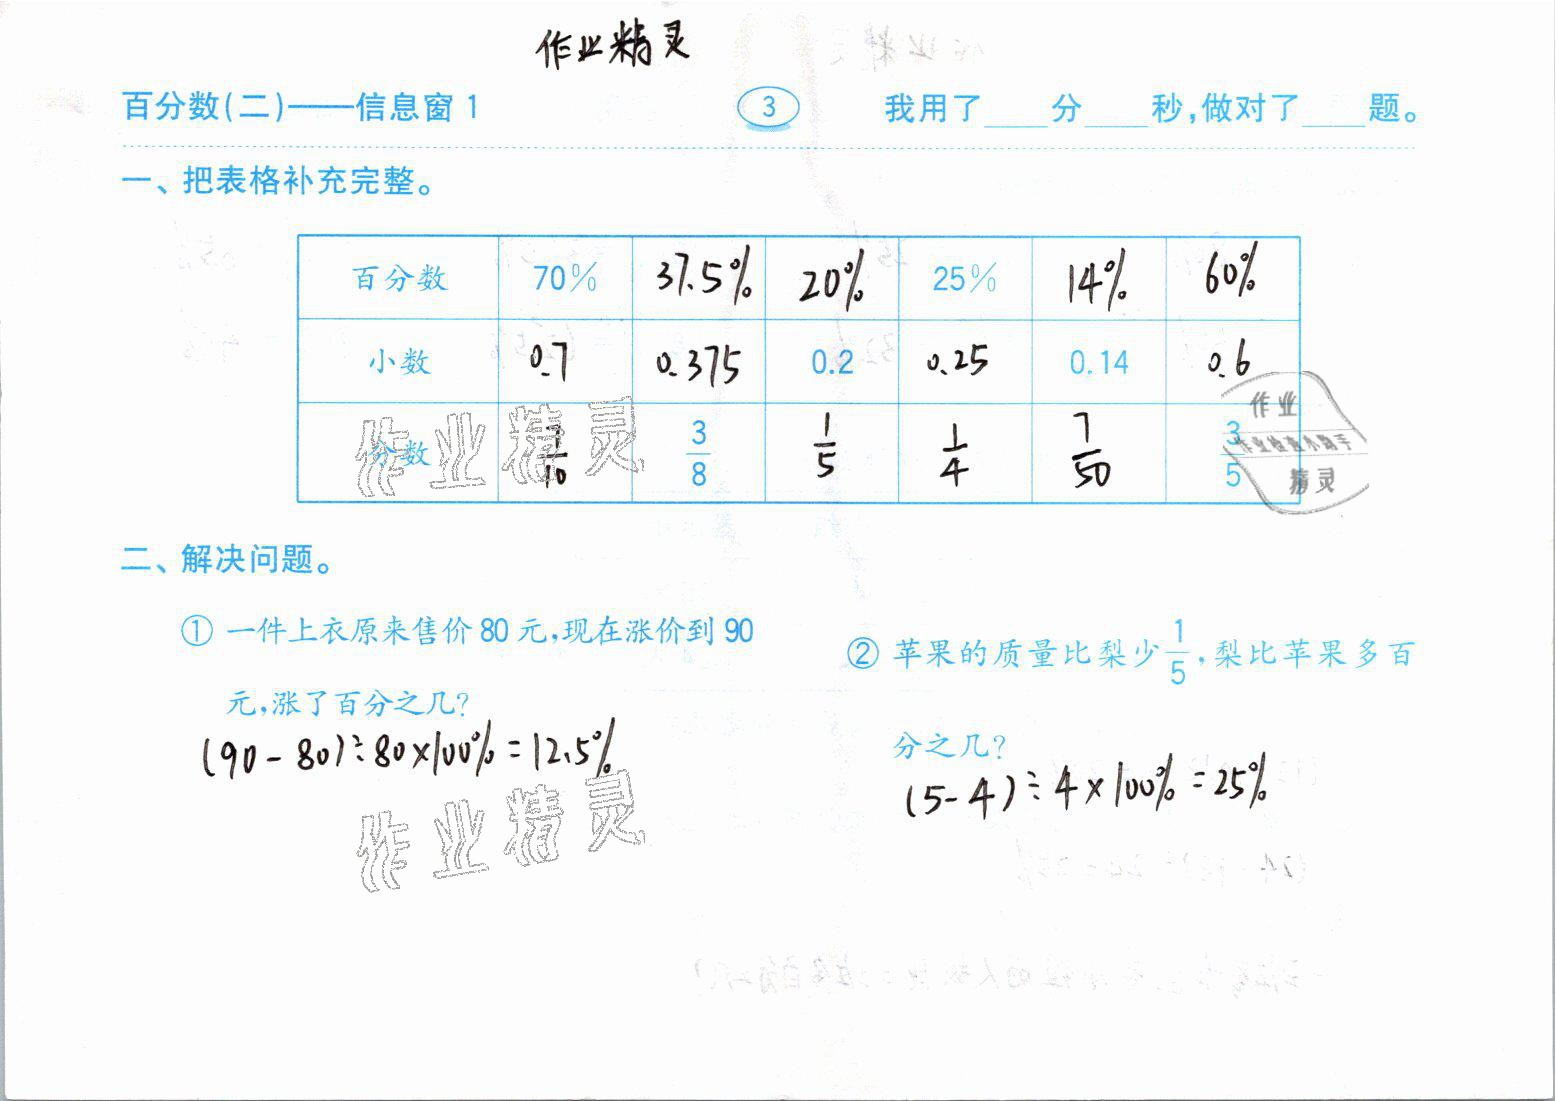 作业精灵
百分数(二)——信息窗1 3 我用了____分____秒,做对了____题。
一、把表格补充完整。
百分数 70% 37.5% 20% 25% 14% 60%
小数 0.7 0.375 0.2 0.25 0.14 0.6
分数 7/10 3/8 1/5 1/4 7/50 3/5
作业精灵
作业
作业检查小助手
精灵
二、解决问题。
① 一件上衣原来售价80元,现在涨价到90
元,涨了百分之几?
(90-80)÷80×100%=12.5%
② 苹果的质量比梨少1/5,梨比苹果多百
分之几?
(5-4)÷4×100%=25%
作业精灵